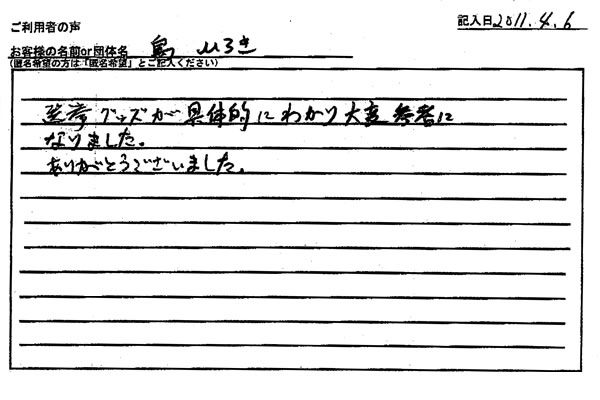 ご利用者の声
記入日2011.4.6
お客様の名前or団体名 島 ひろき
(匿名希望の方は「匿名希望」とご記入ください)
グッズが具体的にわかり大変参考に
なりました。
ありがとうございました。